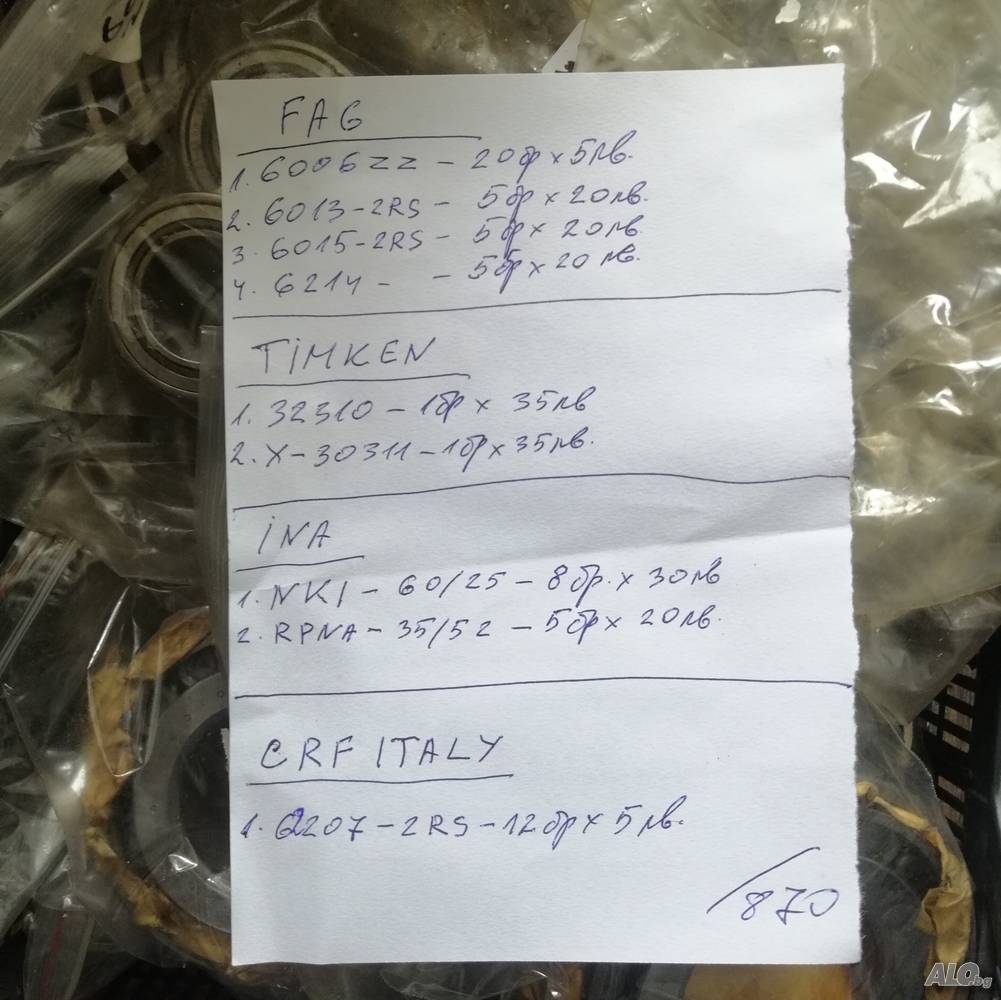 FAG
1. 6006ZZ - 20бр x 5лв.
2. 6013-2RS - 5бр x 20лв.
3. 6015-2RS - 5бр x 20лв
4. 6214 - - 5бр x 20лв.
TiMKEN
1. 32310 - 1бр x 35лв
2. X-30311 - 1бр x 35лв.
iNA
1. NKI - 60/25 - 8бр. x 30лв
2. RPNA - 35/52 - 5бр x 20лв.
CRF ITALY
1. 62207-2RS - 12бр x 5лв.
/870
ALO.bg